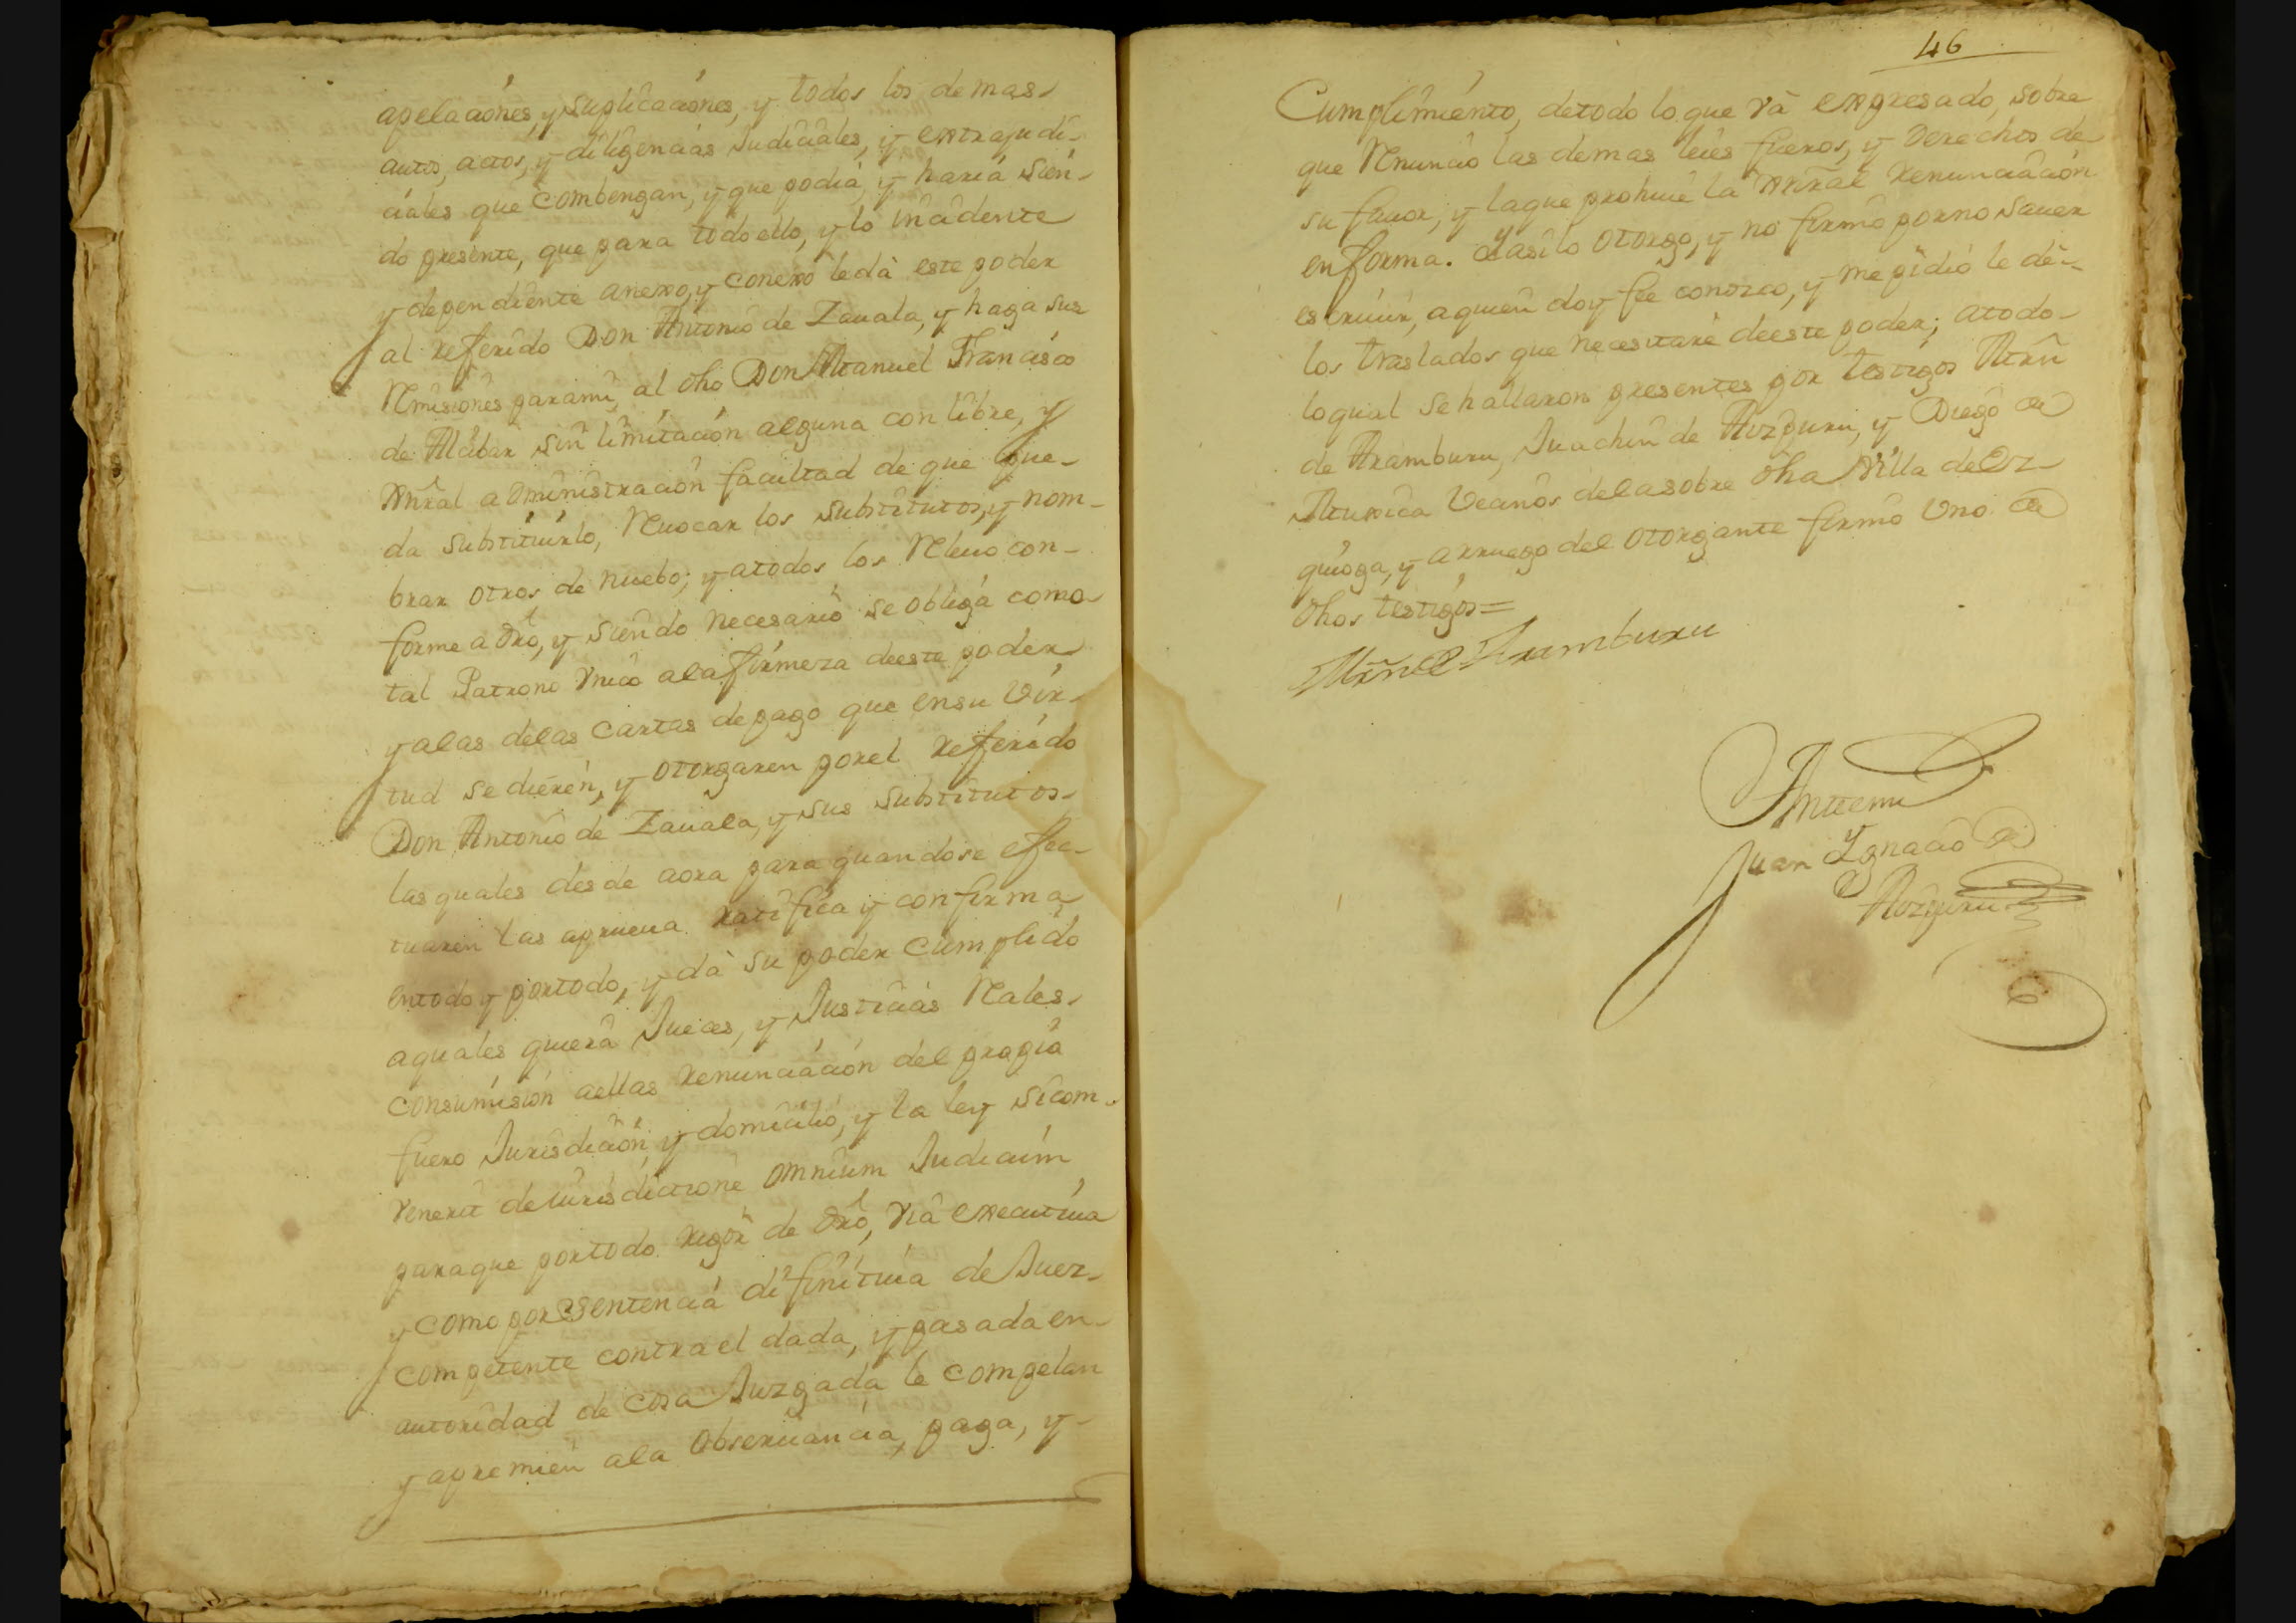 apelaciónes, y suplicaciónes, y todos los demas
autos, actos, y diligencias Judiciales, y extrajudi-
ciales que combengan, y que podia, y haria sien-
do presente, que para todo ello, y lo incidente
y dependiente anexo, y conexo le dà este poder
al referido Don Antonio de Zauala, y haga sus
Remisiones para mi, al dho Don Manuel Francisco
de sin limitación alguna con libre, y
gñral administración facultad de que pue-
da substituirlo, Reuocar los substitutos, y nom-
brar otros de nuebo; y a todos los Releuo con-
forme a dro, y siendo necesario se obliga como
tal Patrono Vnico a la firmeza de este poder
y a las de las cartas de pago que en su Vir-
tud se dieren, y otorgaren por el referido
Don Antonio de Zauala, y sus substitutos
las quales desde aora para quando se efec-
tuaren las aprueua ratifica y confirma
en todo y por todo, y dà su poder cumplido
a quales quiera Jueces, y Justicias Reales
con sumisión a ellas renunciación del propio
fuero Jurisdición, y domicilio, y la ley sicom-
venerit de iurisdictione omnium Judicum
para que por todo rigor de dro, via executiua
y como por sentencia difinitiua de Juez
competente contra el dada, y pasada en
autoridad de cosa Juzgada le compelan
y apremien a la obseruancia, paga, y
46
Cumplimiento, de todo lo que và expresado, sobre
que Renunció las demas leies fueros, y derechos de
su fauor, y la que prohiue la gñral renunciación
en forma. Y asi lo otorgo, y no firmó por no sauer
escriuir, a quien doy fee conozco, y me pidió le dè
los traslados que necesitare de este poder; a todo
lo qual se hallaron presentes por testigos Mrñ
de Aramburu, Juachin de Aozpuru, y Diego de
Vecinos de la sobre dha Villa de Az-
, y a rruego del otorgante firmó Vno de
dhos testigos=
Mrñ de Aramburu
Antemi
Juan Ygnacio de
Aozpuru